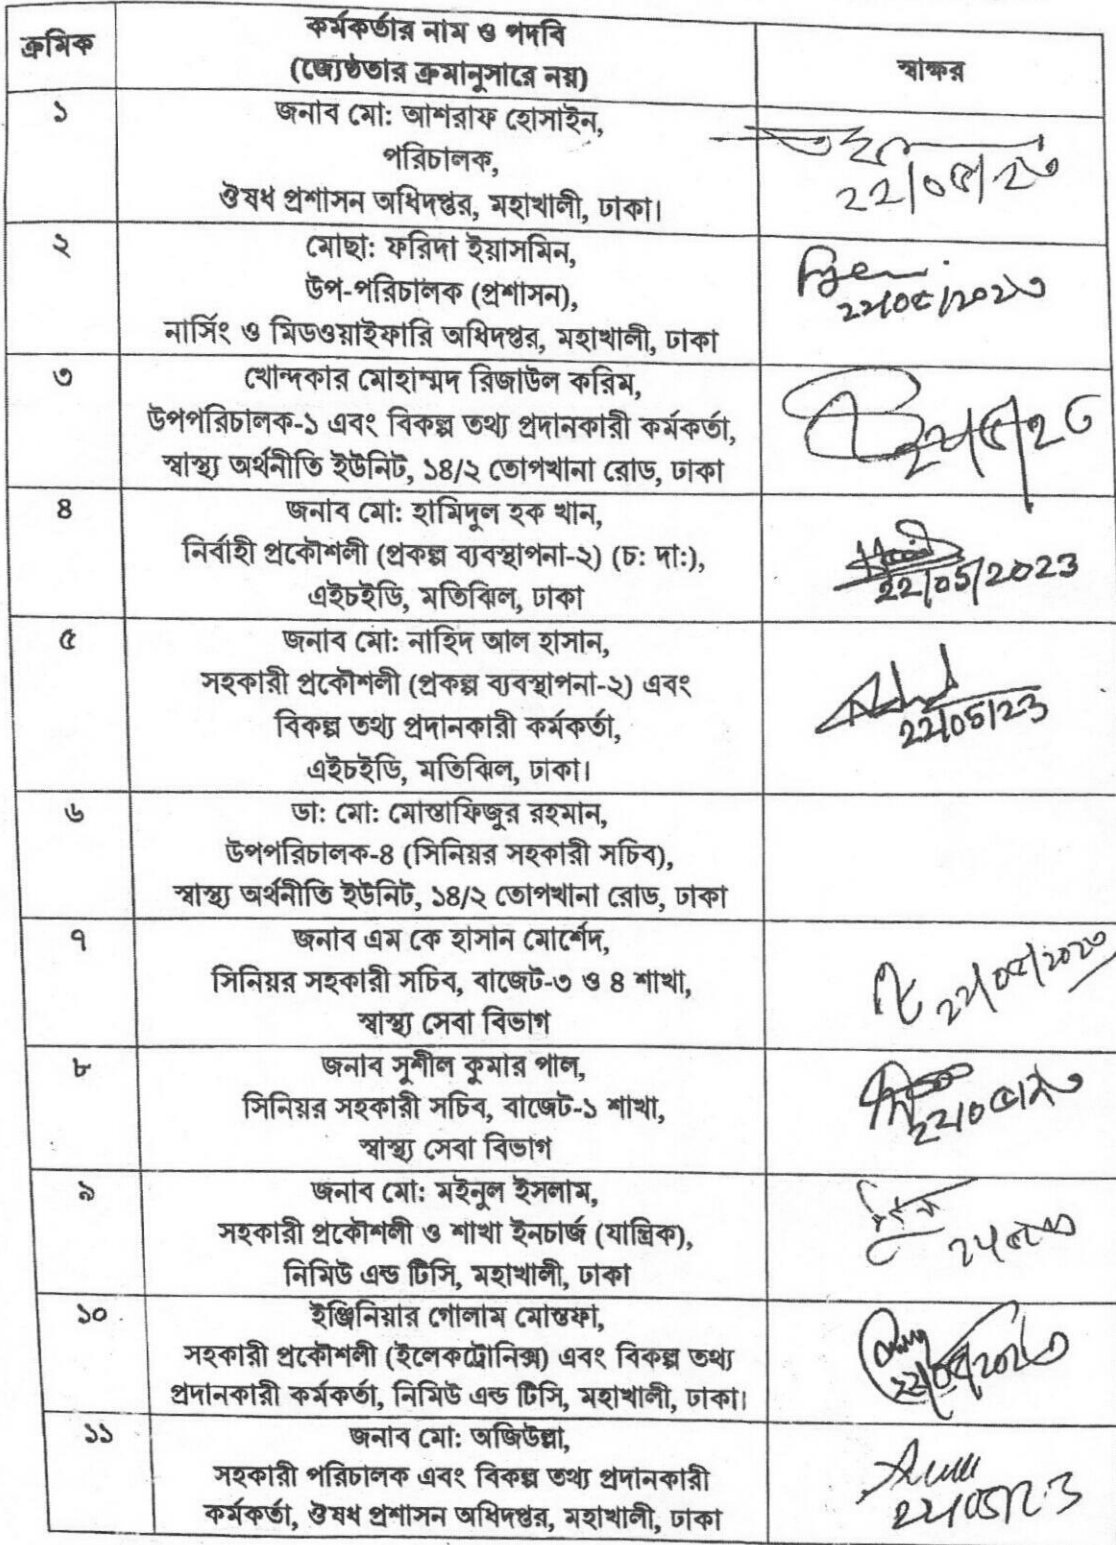 ক্রমিক
কর্মকর্তার নাম ও পদবি
(জ্যেষ্ঠতার ক্রমানুসারে নয়)
স্বাক্ষর
১
জনাব মো: আশরাফ হোসাইন,
পরিচালক,
ঔষধ প্রশাসন অধিদপ্তর, মহাখালী, ঢাকা।
২২/০৫/২৩
২
মোছা: ফরিদা ইয়াসমিন,
উপ-পরিচালক (প্রশাসন),
নার্সিং ও মিডওয়াইফারি অধিদপ্তর, মহাখালী, ঢাকা
২২/০৫/২০২৩
৩
খোন্দকার মোহাম্মদ রিজাউল করিম,
উপপরিচালক-১ এবং বিকল্প তথ্য প্রদানকারী কর্মকর্তা,
স্বাস্থ্য অর্থনীতি ইউনিট, ১৪/২ তোপখানা রোড, ঢাকা
২২/৫/২৩
৪
জনাব মো: হামিদুল হক খান,
নির্বাহী প্রকৌশলী (প্রকল্প ব্যবস্থাপনা-২) (চ: দা:),
এইচইডি, মতিঝিল, ঢাকা
22/05/2023
৫
জনাব মো: নাহিদ আল হাসান,
সহকারী প্রকৌশলী (প্রকল্প ব্যবস্থাপনা-২) এবং
বিকল্প তথ্য প্রদানকারী কর্মকর্তা,
এইচইডি, মতিঝিল, ঢাকা।
22/05/23
৬
ডা: মো: মোস্তাফিজুর রহমান,
উপপরিচালক-৪ (সিনিয়র সহকারী সচিব),
স্বাস্থ্য অর্থনীতি ইউনিট, ১৪/২ তোপখানা রোড, ঢাকা
৭
জনাব এম কে হাসান মোর্শেদ,
সিনিয়র সহকারী সচিব, বাজেট-৩ ও ৪ শাখা,
স্বাস্থ্য সেবা বিভাগ
২২/০৫/২০২৩
৮
জনাব সুশীল কুমার পাল,
সিনিয়র সহকারী সচিব, বাজেট-১ শাখা,
স্বাস্থ্য সেবা বিভাগ
২২/০৫/২৩
৯
জনাব মো: মইনুল ইসলাম,
সহকারী প্রকৌশলী ও শাখা ইনচার্জ (যান্ত্রিক),
নিমিউ এন্ড টিসি, মহাখালী, ঢাকা
১০
ইঞ্জিনিয়ার গোলাম মোস্তফা,
সহকারী প্রকৌশলী (ইলেকট্রোনিক্স) এবং বিকল্প তথ্য
প্রদানকারী কর্মকর্তা, নিমিউ এন্ড টিসি, মহাখালী, ঢাকা।
২২/০৫/২০২৩
১১
জনাব মো: অজিউল্লা,
সহকারী পরিচালক এবং বিকল্প তথ্য প্রদানকারী
কর্মকর্তা, ঔষধ প্রশাসন অধিদপ্তর, মহাখালী, ঢাকা
22/05/23